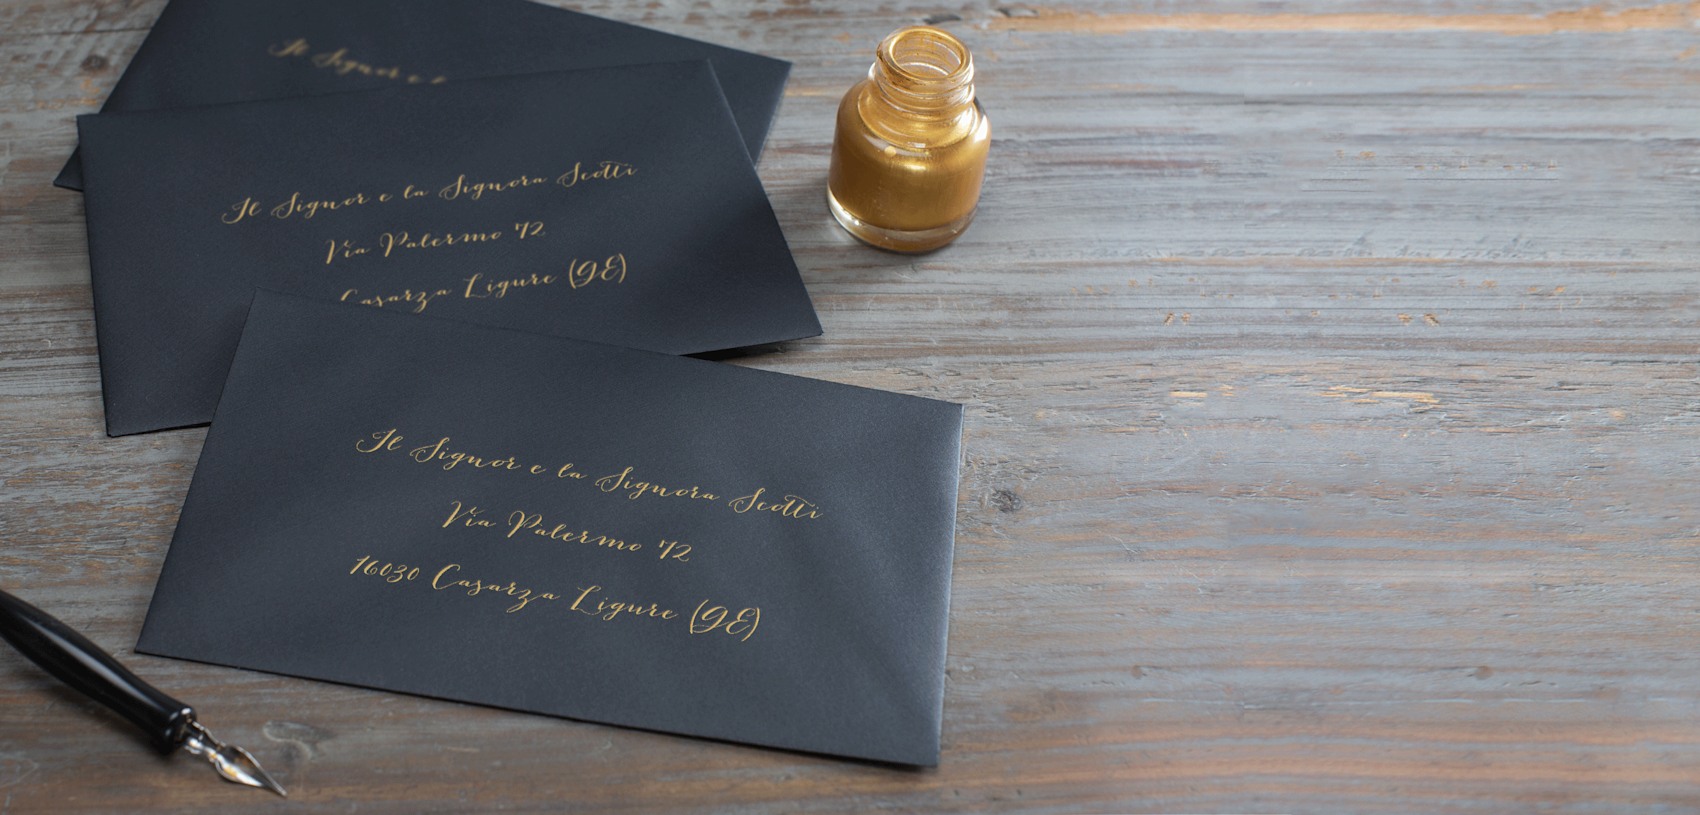 Il Signor e
Il Signor e la Signora Scotti
Via Palermo 72
Casarza Ligure (GE)
Il Signor e la Signora Scotti
Via Palermo 72
16030 Casarza Ligure (GE)